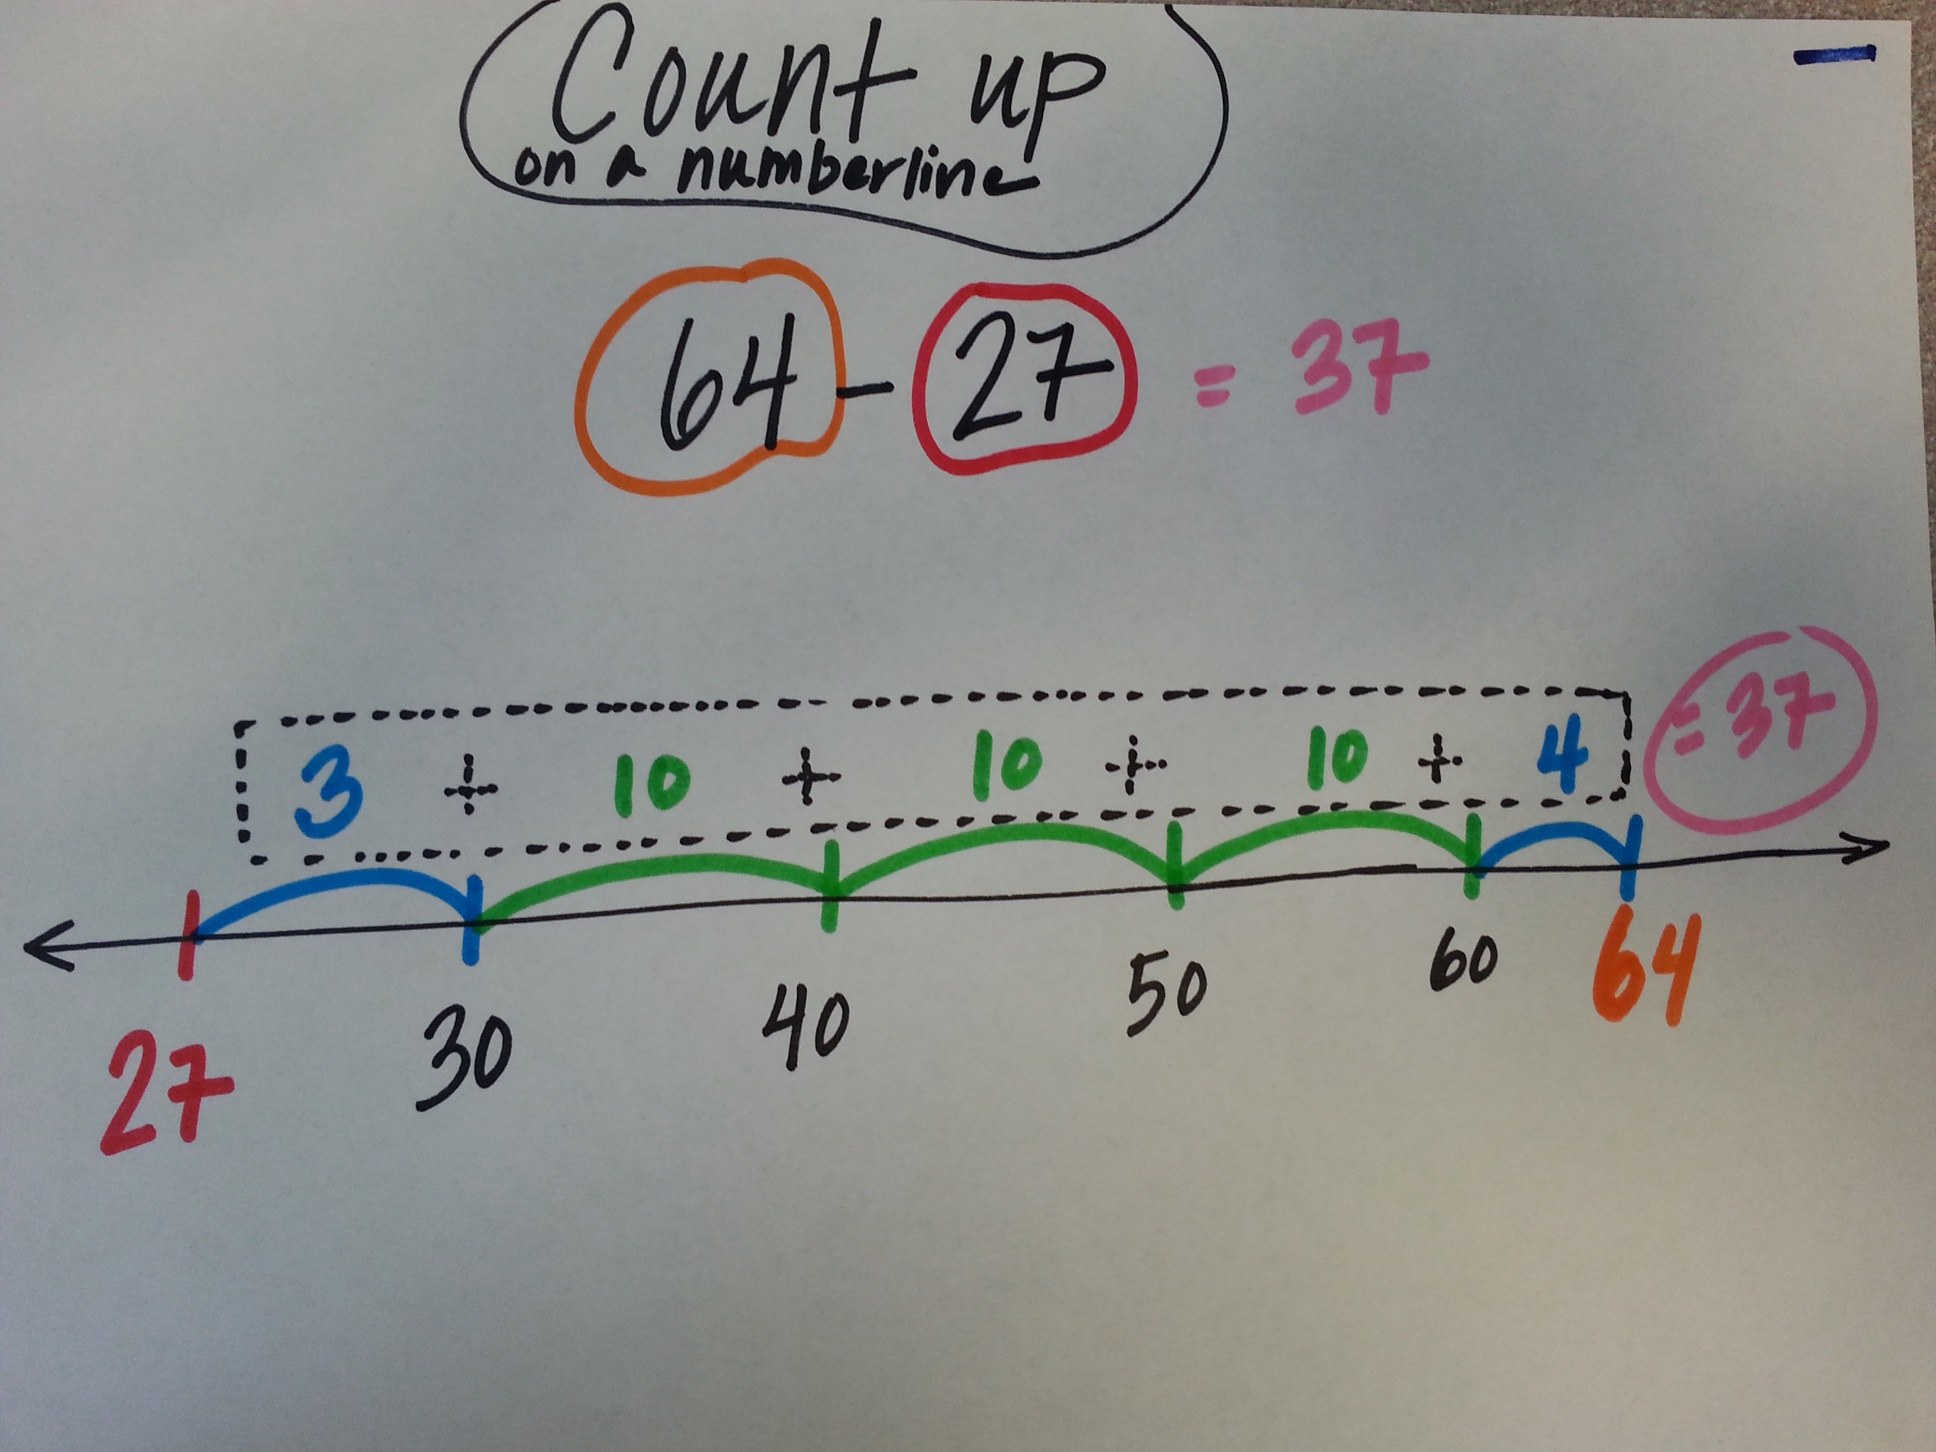 Count up
on a numberline
64 - 27 = 37
3 + 10 + 10 + 10 + 4 = 37
27 30 40 50 60 64